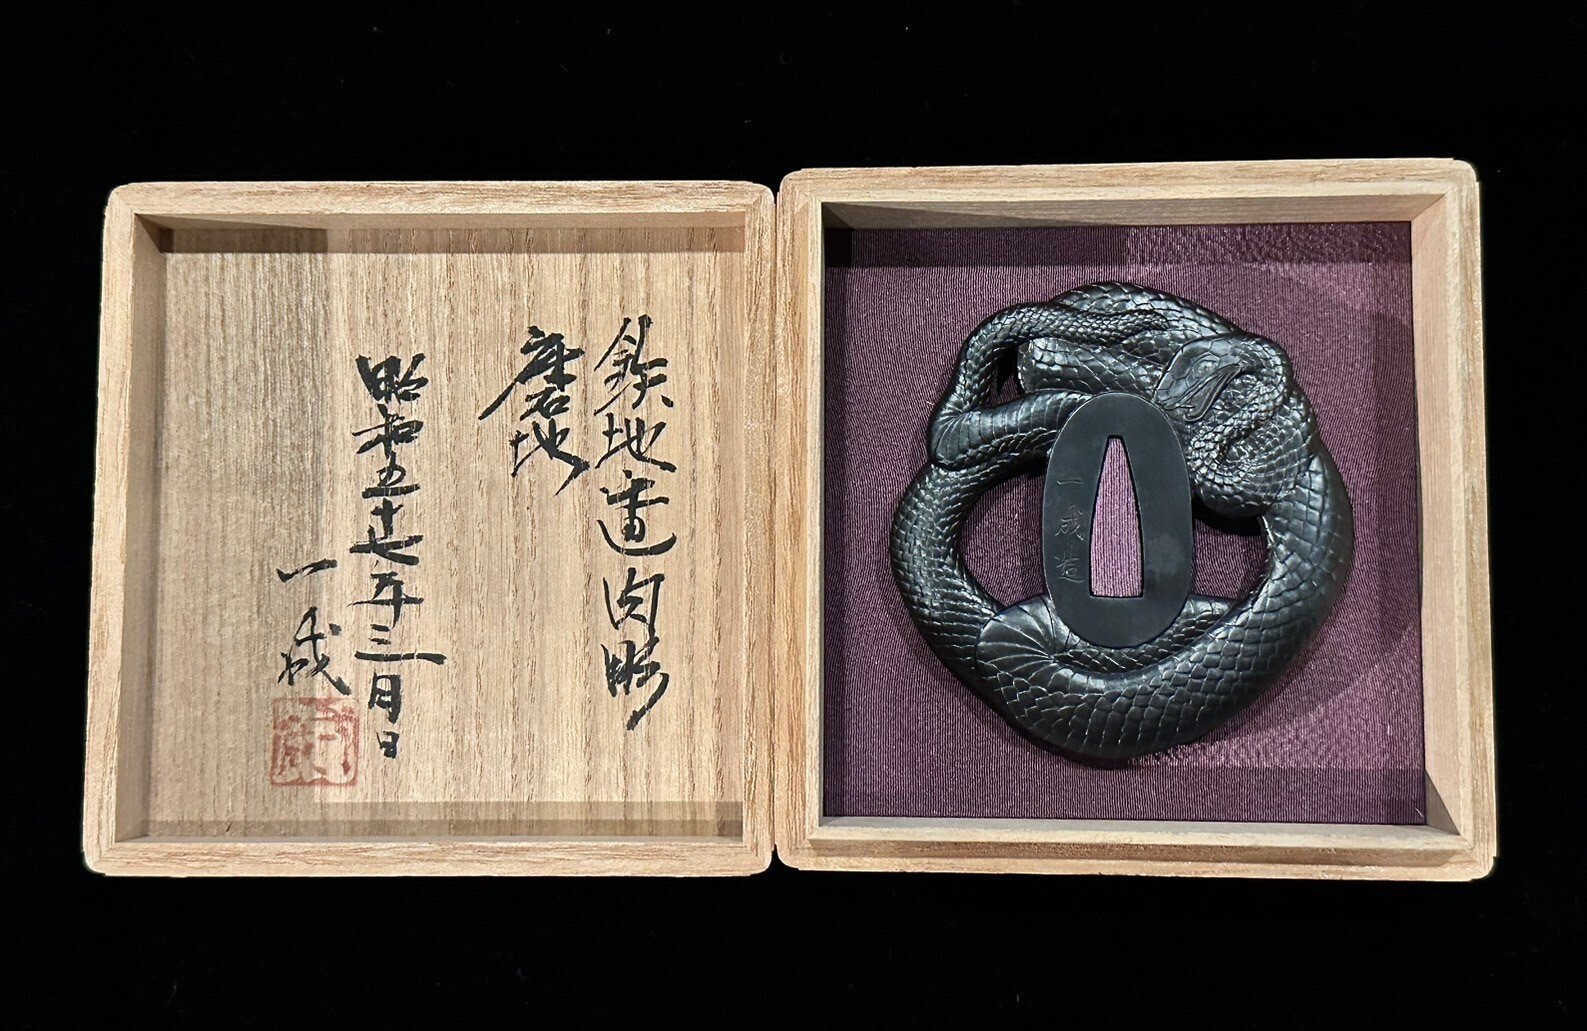 鉄地透肉彫
磨地
昭和五十七年三月日
一成
一成造